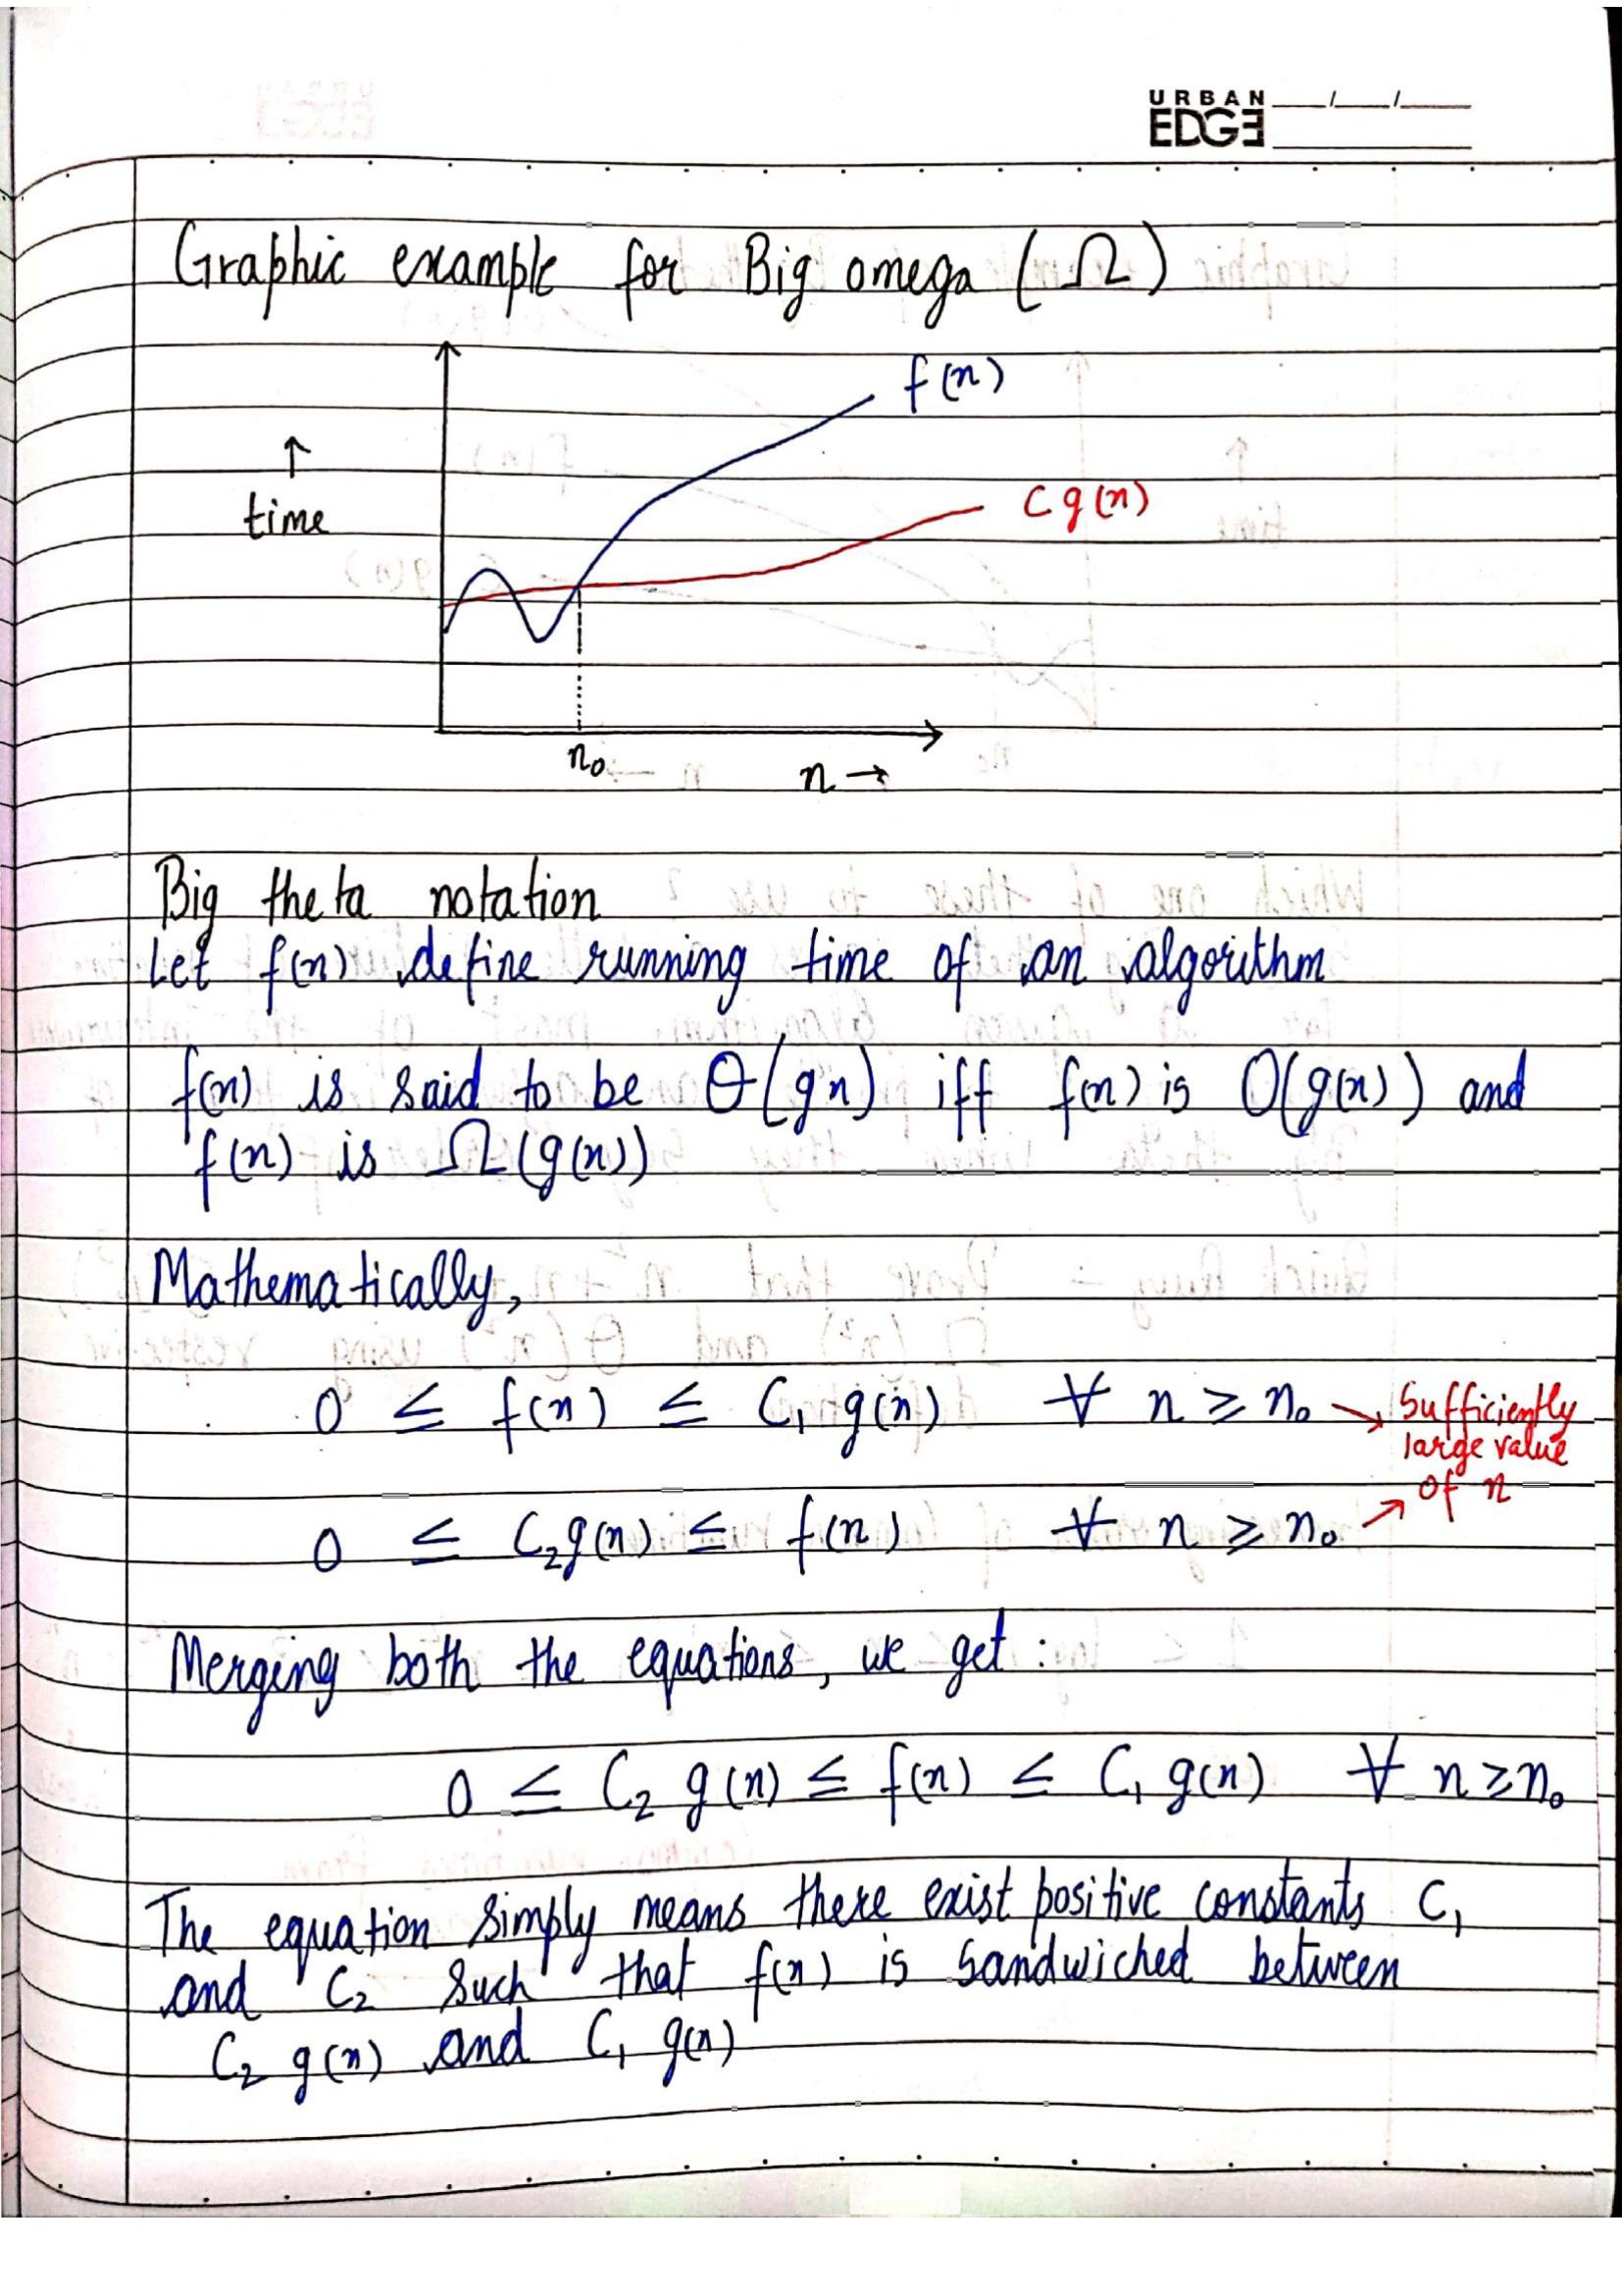 URBAN
EDGE
Graphic example for Big omega (Ω)
f(n)
↑
time
C g(n)
n₀
n →
Big theta notation
Let f(n) define running time of an algorithm
f(n) is said to be θ(gn) iff f(n) is O(g(n)) and
f(n) is Ω(g(n))
Mathematically,
0 ≤ f(n) ≤ C₁ g(n) ∀ n ≥ n₀ → Sufficiently
large value
of n
0 ≤ C₂g(n) ≤ f(n) ∀ n ≥ n₀ →
Merging both the equations, we get :
0 ≤ C₂ g(n) ≤ f(n) ≤ C₁ g(n) ∀ n ≥ n₀
The equation simply means there exist positive constants C₁
and C₂ such that f(n) is sandwiched between
C₂ g(n) and C₁ g(n)